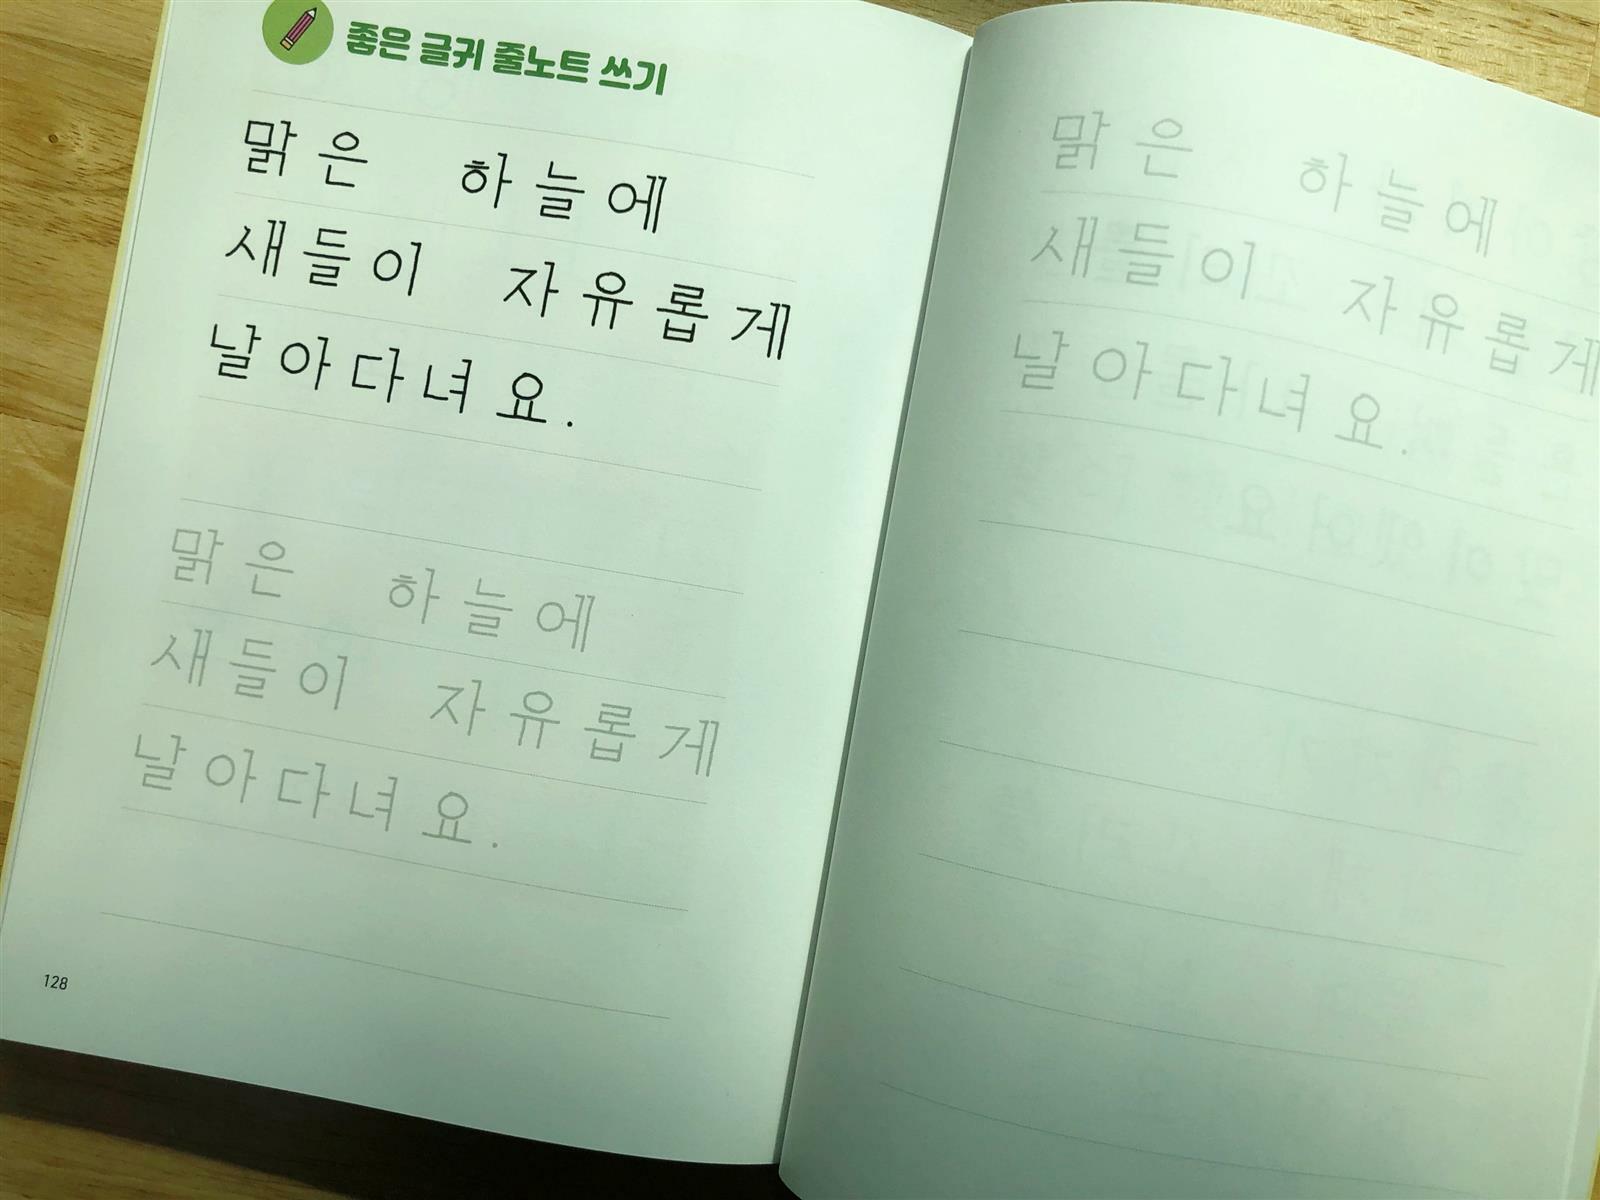 좋은 글귀 줄노트 쓰기
맑은 하늘에
새들이 자유롭게
날아다녀요.
맑은 하늘에
새들이 자유롭게
날아다녀요.
128
맑은 하늘에
새들이 자유롭게
날아다녀요.